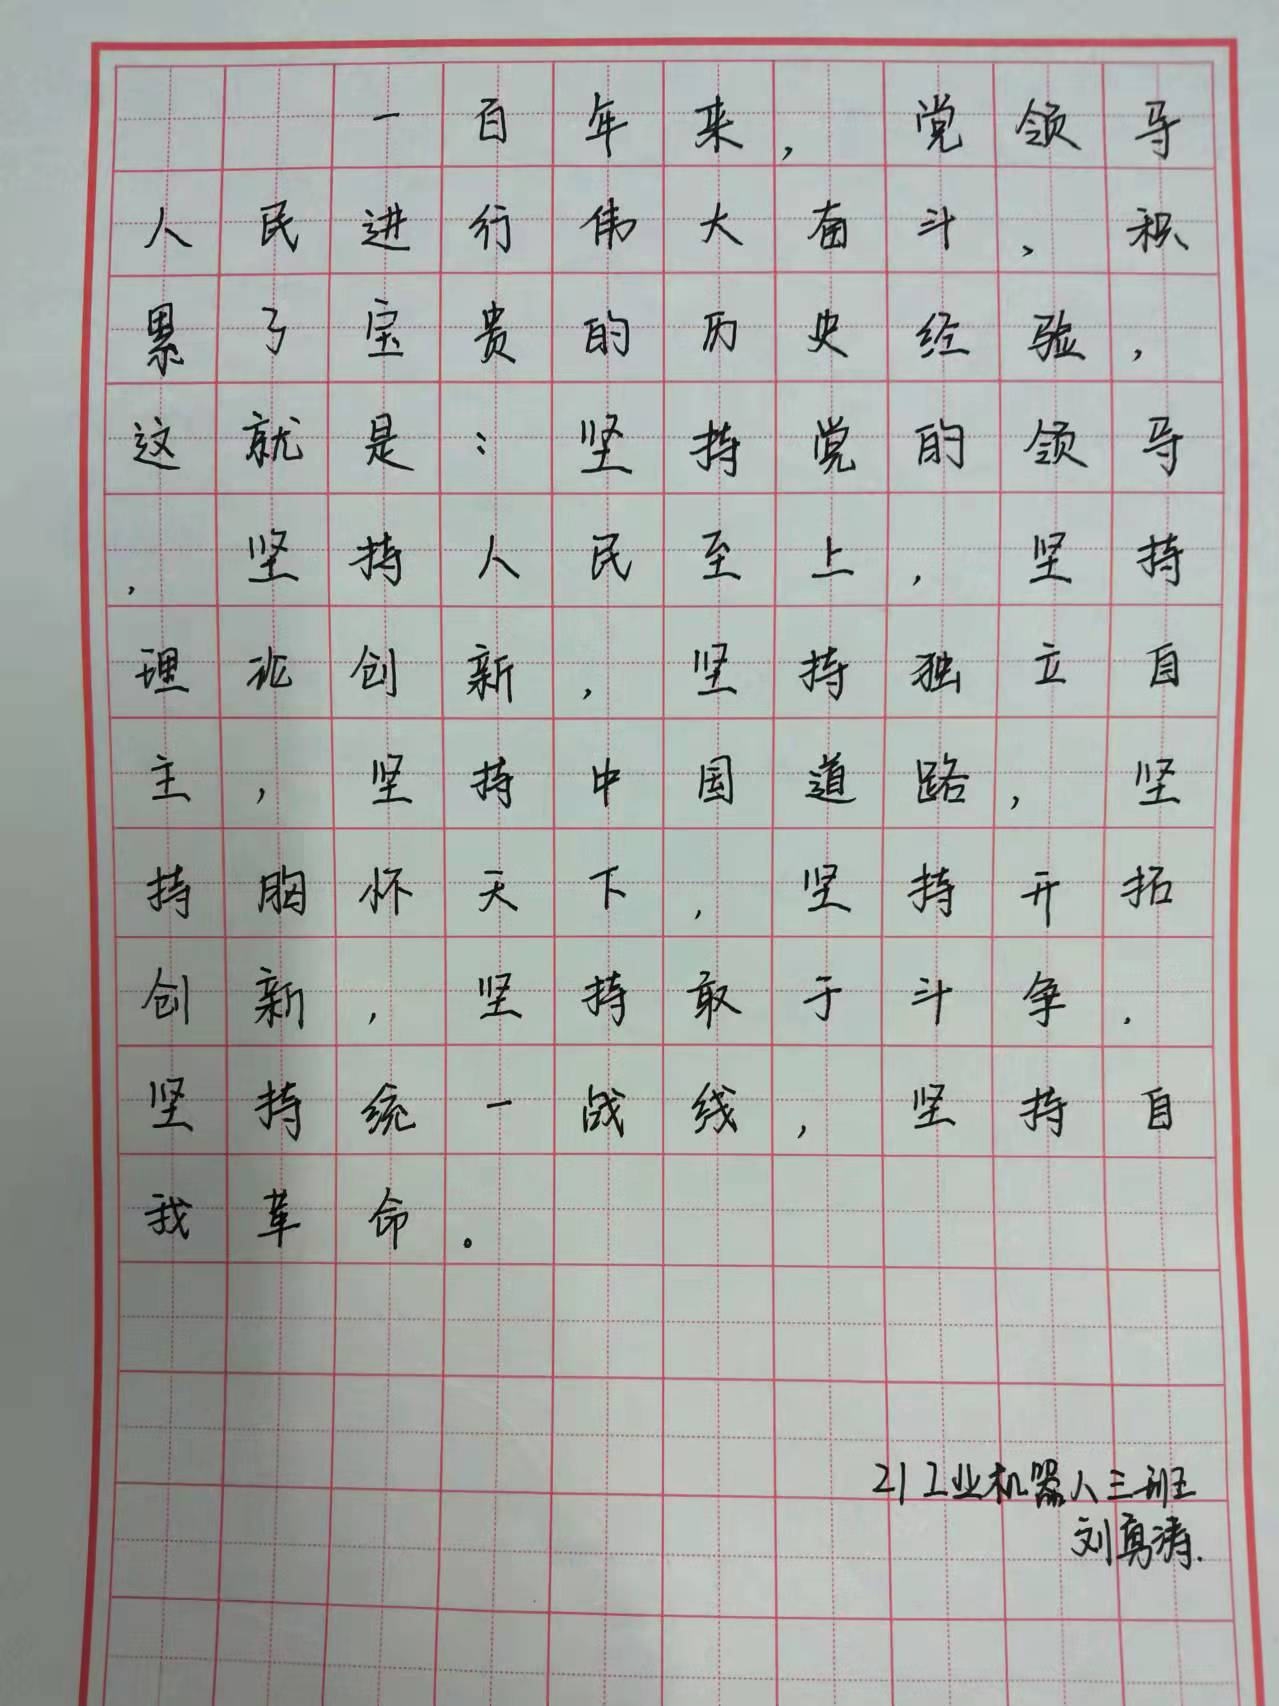 一百年来，党领导
人民进行伟大奋斗，积
累了宝贵的历史经验，
这就是：坚持党的领导
，坚持人民至上，坚持
理论创新，坚持独立自
主，坚持中国道路，坚
持胸怀天下，坚持开拓
创新，坚持敢于斗争，
坚持统一战线，坚持自
我革命。
21工业机器人三班
刘勇涛.